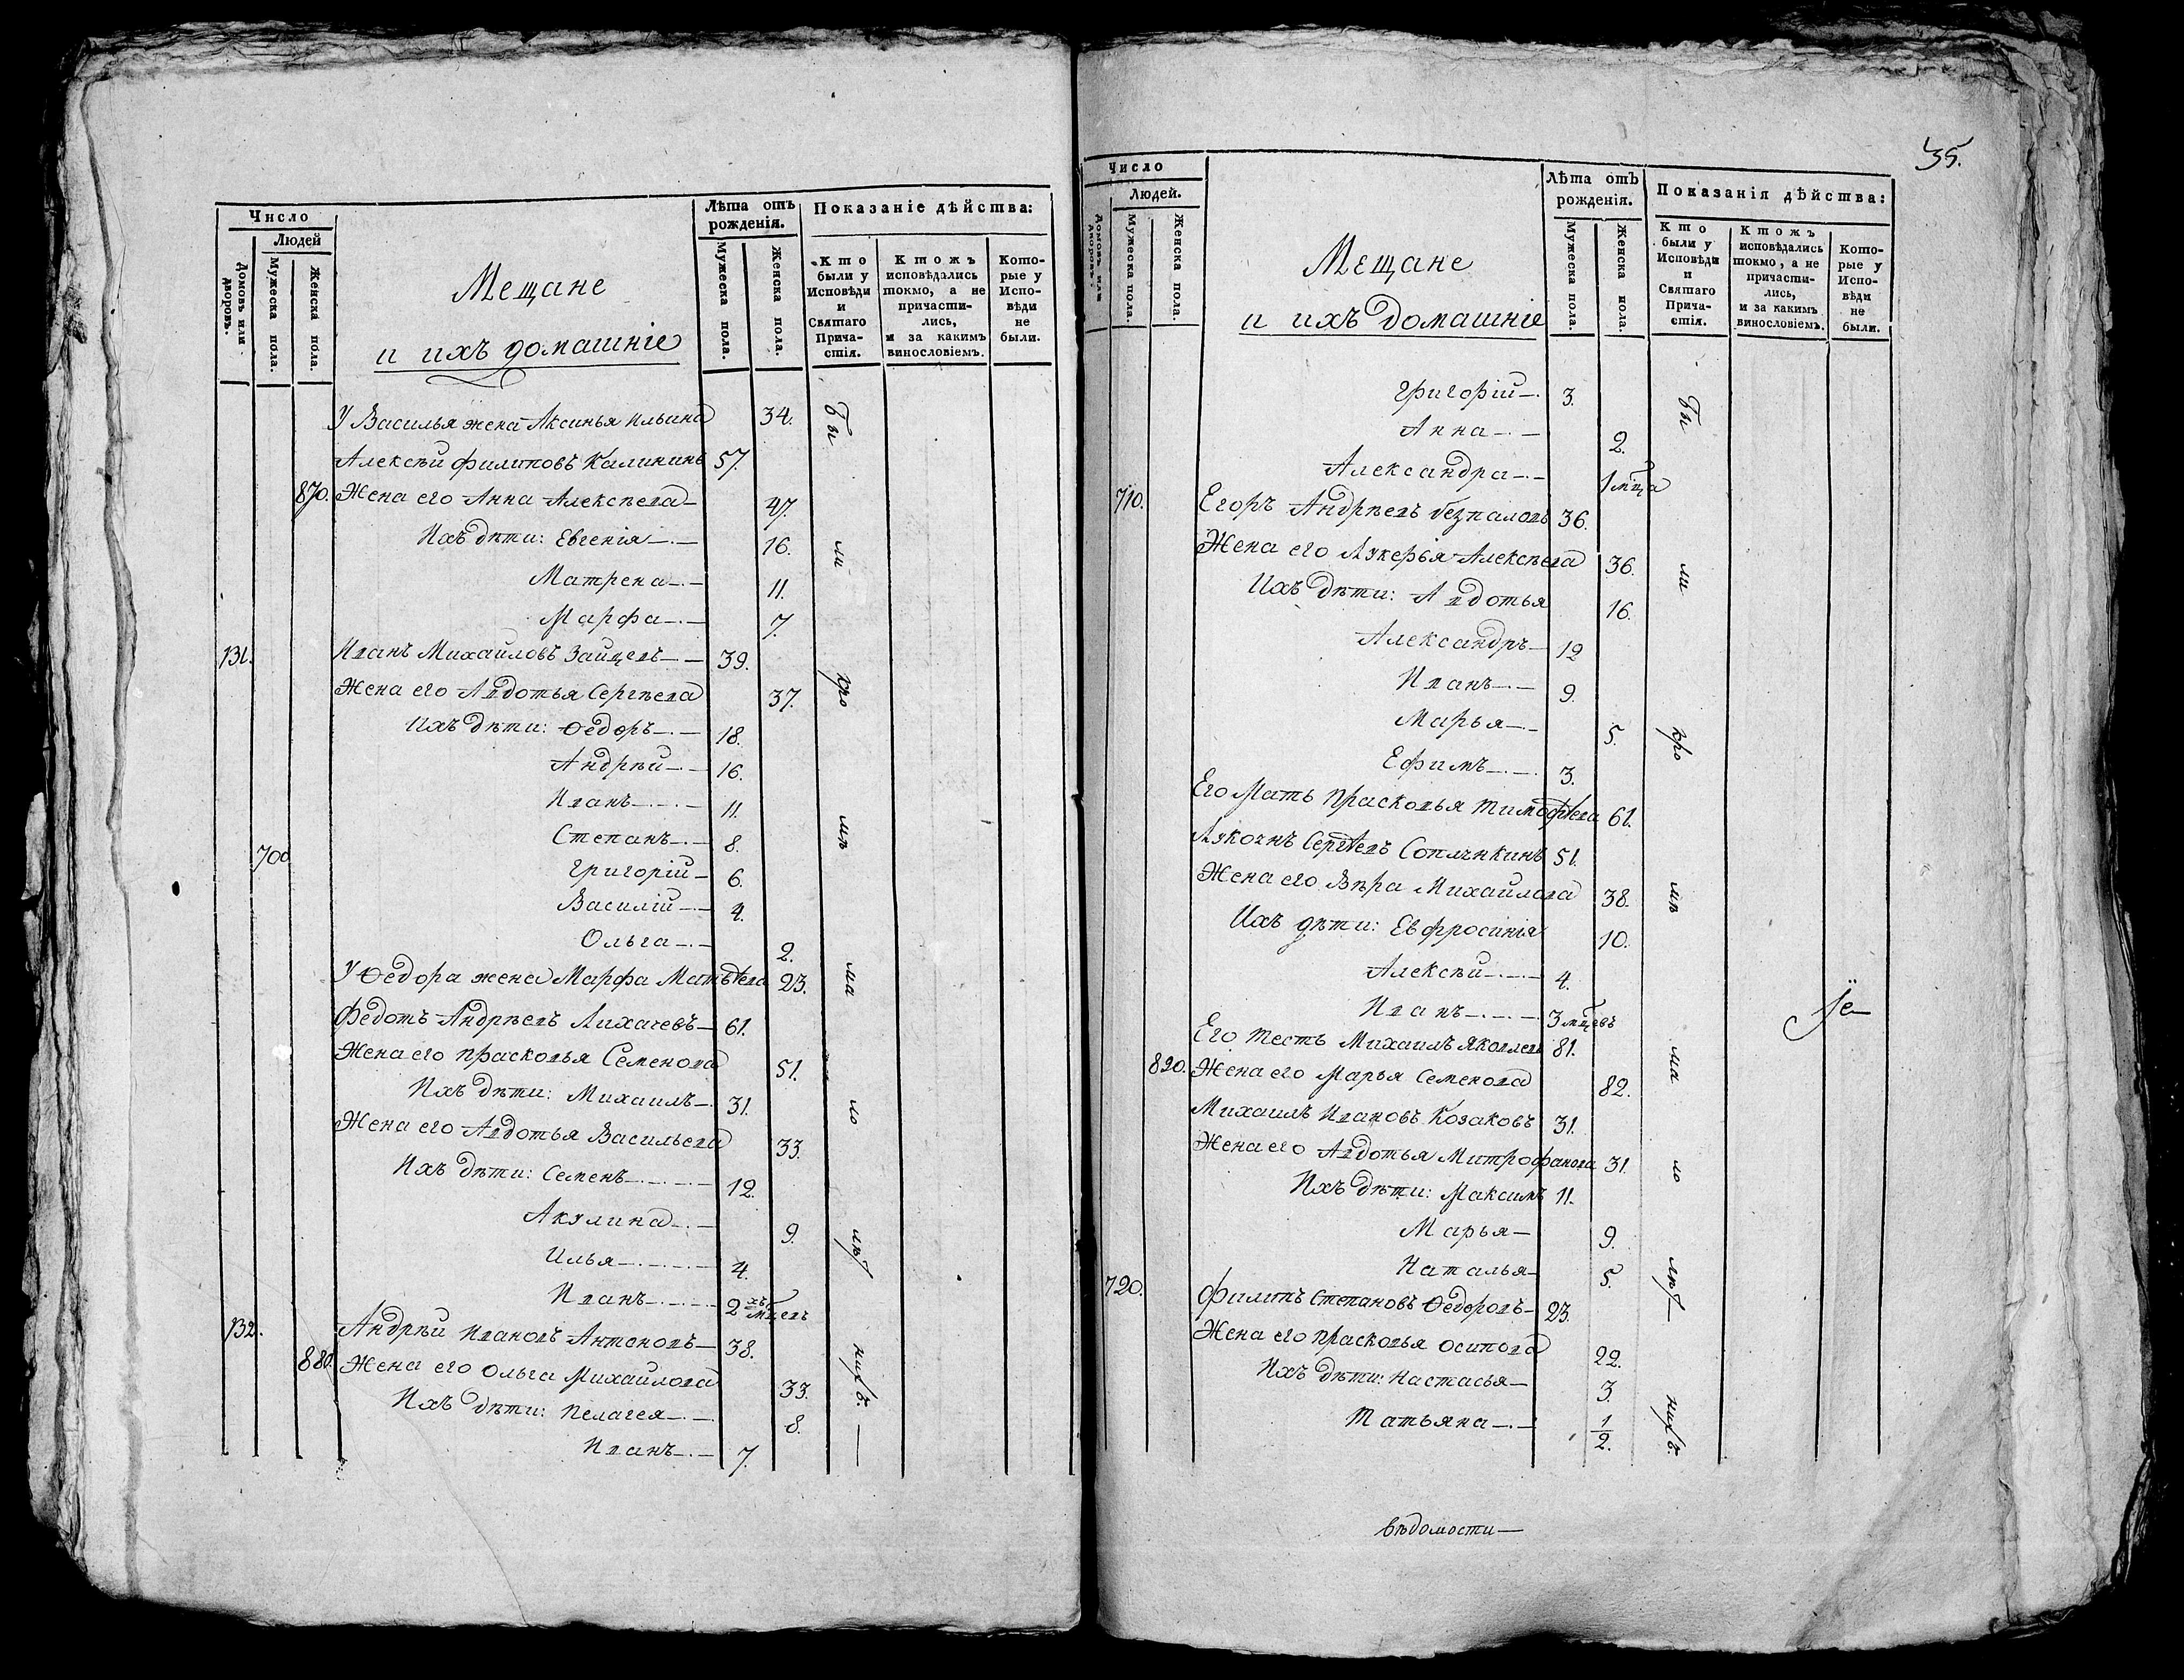 Число
Людей
Домовъ или дворовъ.
Мужеска пола.
Женска пола.
Мещане
и ихъ домашніе
Лѣта отъ рожденія.
Мужеска пола.
Женска пола.
Показаніе дѣйства:
Кто были у Исповѣди и Святаго Прича-стія.
Ктожъ исповѣдались токмо, а не причасти-лись, и за какимъ винословіемъ.
Кото-рые у Испо-вѣди не были.
У Василья жена Аксинья Ильина 34.
Алексѣй Филиповъ Калининъ 57.
870. Жена его Анна Алексѣева 47.
Ихъ дѣти: Евгенія 16.
Матрена 11.
Марфа 7.
131. Иванъ Михайловъ Зайцевъ 39.
Жена его Авдотья Сергѣева 37.
Ихъ дѣти: Ѳедоръ 18.
Андрѣй 16.
Иванъ 11.
Степанъ 8.
700 Григорій 6.
Василій 4.
Ольга 2.
У Ѳедора жена Марфа Матвѣева 23.
Федотъ Андрѣевъ Лихачевъ 61.
Жена его Прасковья Семенова 51.
Ихъ дѣти: Михаилъ 31.
Жена его Авдотья Васильева 33.
Ихъ дѣти: Семенъ 12.
Акулина 9.
Илья 4.
Иванъ 2хъ мцевъ
132. Андрѣй Ивановъ Антоновъ 38.
880. Жена его Ольга Михайлова 33.
Ихъ дѣти: Пелагея 8.
Иванъ 7.
Бы
ли
кро
мѣ
ма
ло
лѣт
нихъ.
35.
Число
Людей.
Домовъ или дворовъ.
Мужеска пола.
Женска пола.
Мещане
и ихъ домашніе
Лѣта отъ рожденія.
Мужеска пола.
Женска пола.
Показанія дѣйства:
Кто были у Исповѣди и Святаго Прича-стія.
Ктожъ исповѣдались токмо, а не причасти-лись, и за какимъ винословіемъ.
Кото-рые у Испо-вѣди не были.
Григорій 3.
Анна 2.
Александра 1 мца
710. Егоръ Андрѣевъ Безпаловъ 36.
Жена его Лукерья Алексѣева 36.
Ихъ дѣти: Авдотья 16.
Александръ 12
Иванъ 9.
Марья 5.
Ефимъ 3.
Его Мать Прасковья Тимофѣева 61.
Сергѣевъ 51.
Жена его Вѣра Михайлова 38.
Ихъ дѣти: Евфросинія 10.
Алексѣй 4.
Иванъ 3 мцевъ
Его Тесть Михаилъ Яковлевъ 81.
820. Жена его Марья Семенова 82.
Михаилъ Ивановъ Козаковъ 31.
Жена его Авдотья Митрофанова 31.
Ихъ дѣти: Максимъ 11.
Марья 9.
Наталья 5.
720. Филипъ Степановъ Ѳедоровъ 23.
Жена его Прасковья Осипова 22.
Ихъ дѣти: Настасья 3.
Татьяна 1/2.
Бы
ли
кро
мѣ
ма
ло
лѣт
нихъ.
вѣдомости